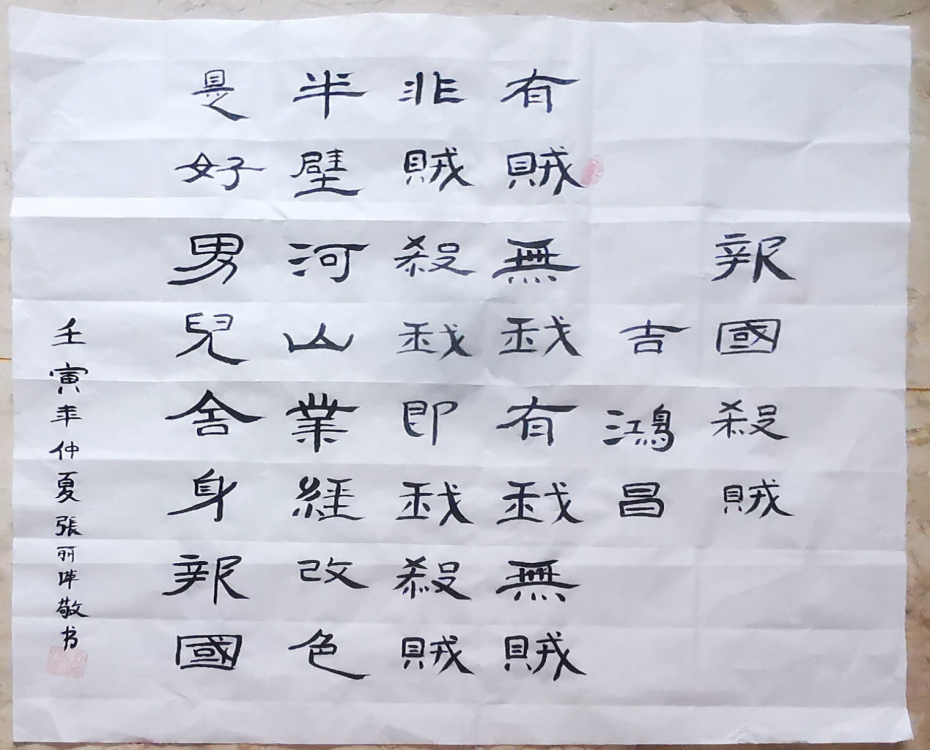 報國殺賊
吉鴻昌
有賊無我有我無賊
非賊殺我即我殺賊
半壁河山業經改色
是好男兒舍身報國
壬寅年仲夏張丽敬书